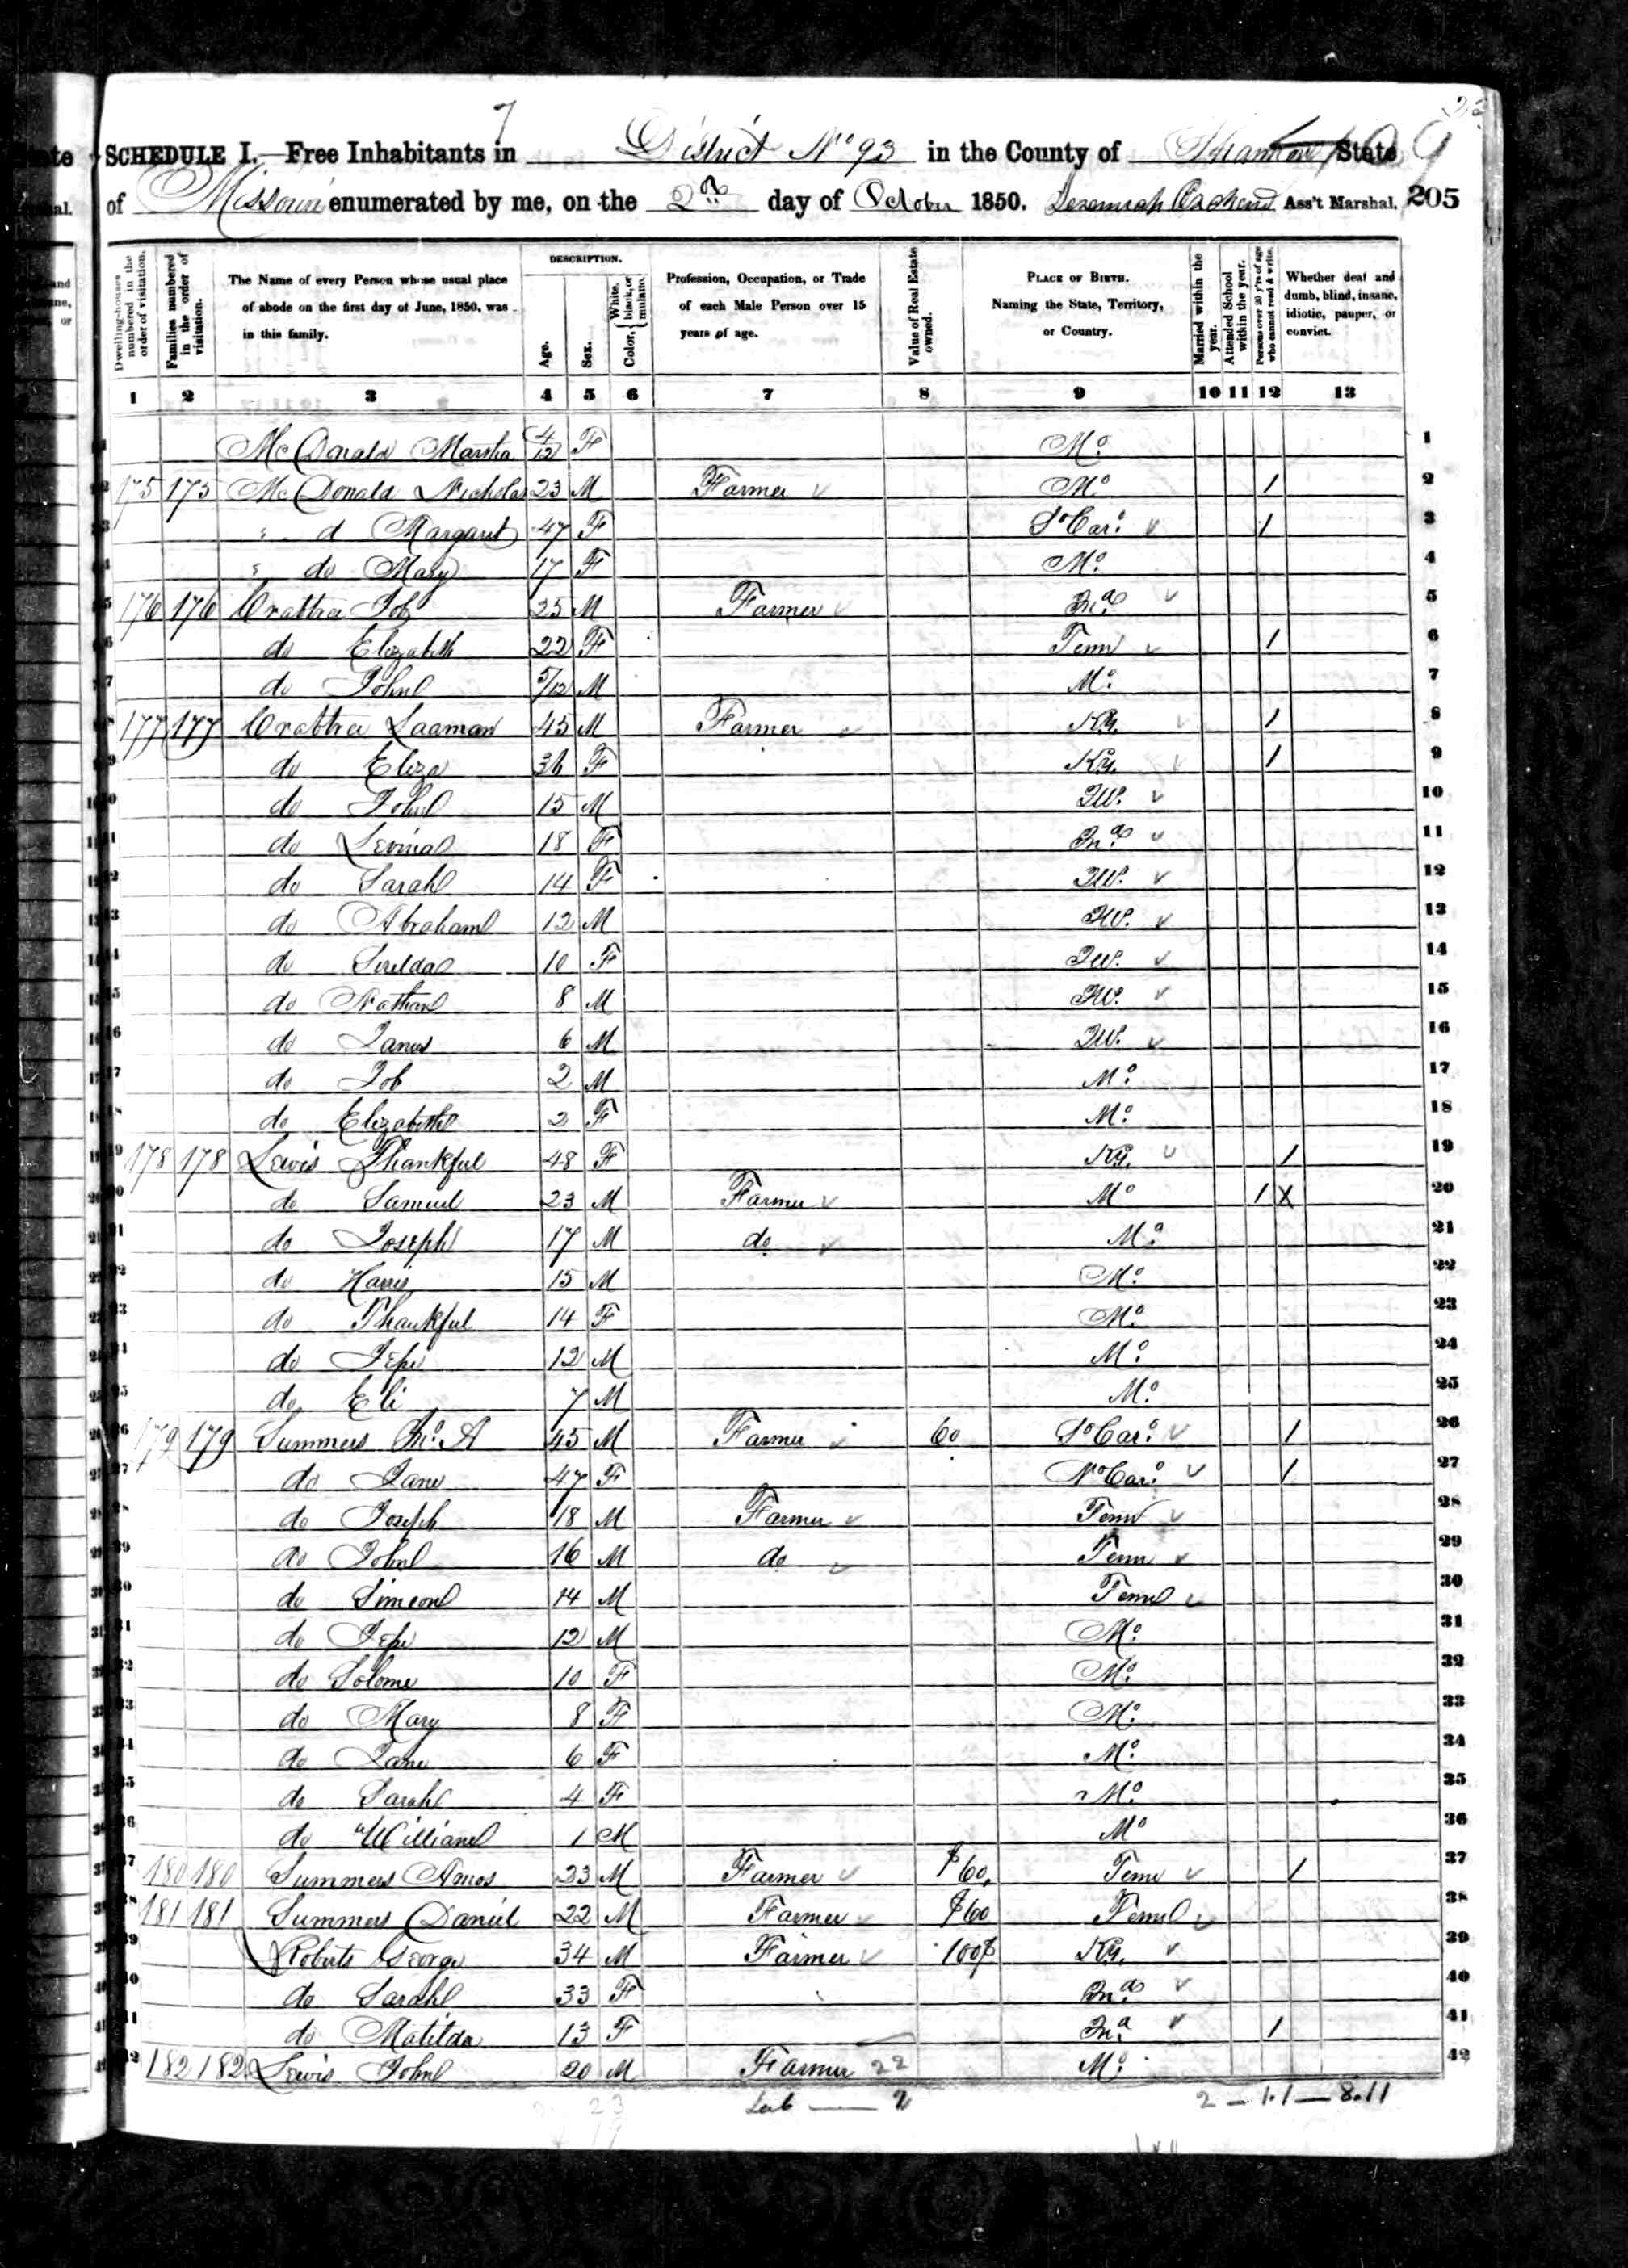 7
SCHEDULE I.—Free Inhabitants in District No 93 in the County of Shannon State
of Missouri enumerated by me, on the 2nd day of October 1850. Jeremiah Orchard Ass't Marshal. 205
Dwelling-houses numbered in the order of visitation.
Families numbered in the order of visitation.
The Name of every Person whose usual place of abode on the first day of June, 1850, was in this family.
DESCRIPTION.
Age.
Sex.
Color, White, black, or mulatto.
Profession, Occupation, or Trade of each Male Person over 15 years of age.
Value of Real Estate owned.
PLACE OF BIRTH. Naming the State, Territory, or Country.
Married within the year.
Attended School within the year.
Persons over 20 y'rs of age who cannot read & write.
Whether deaf and dumb, blind, insane, idiotic, pauper, or convict.
1 2 3 4 5 6 7 8 9 10 11 12 13
McDonald Martha 4/12 F Mo. 1
175 175 McDonald Nicholas 23 M Farmer Mo 1 2
" d Margaret 47 F So Car. 1 3
" do Mary 17 F Mo. 4
176 176 Crabtree Job 25 M Farmer Ina 5
do Elizabeth 22 F Tenn 1 6
do John 5/12 M Mo. 7
177 177 Crabtree Laaman 45 M Farmer Ky. 1 8
do Eliza 36 F Ky. 1 9
do John 15 M Ill. 10
do Levina 18 F Ina 11
do Sarah 14 F Ill. 12
do Abraham 12 M Ill. 13
do Serelda 10 F Ill. 14
do Nathan 8 M Ill. 15
do James 6 M Ill. 16
do Job 2 M Mo. 17
do Elizabeth 2 F Mo. 18
178 178 Lewis Thankful 48 F Ky. 1 19
do Samuel 23 M Farmer Mo 1 X 20
do Joseph 17 M do Mo. 21
do Harris 15 M Mo. 22
do Thankful 14 F Mo. 23
do Jesse 12 M Mo. 24
do Eli 7 M Mo. 25
179 179 Summers Jno. A 45 M Farmer 60 So Car. 1 26
do Jane 47 F No Car. 1 27
do Joseph 18 M Farmer Tenn 28
do John 16 M do Tenn 29
do Simeon 14 M Tenn 30
do Jesse 12 M Mo. 31
do Solome 10 F Mo. 32
do Mary 8 F Mo. 33
do Jane 6 F Mo. 34
do Sarah 4 F Mo. 35
do William 1 M Mo 36
180 180 Summers Amos 23 M Farmer $60. Tenn 1 37
181 181 Summers Daniel 22 M Farmer $60 Tenn 38
Roberts George 34 M Farmer 100$ Ky. 39
do Sarah 33 F Ina 40
do Matilda 13 F Ina. 1 41
182 182 Lewis John 20 M Farmer 22 Mo. 42
Lab — 2 2 — 1.1 — 8.11